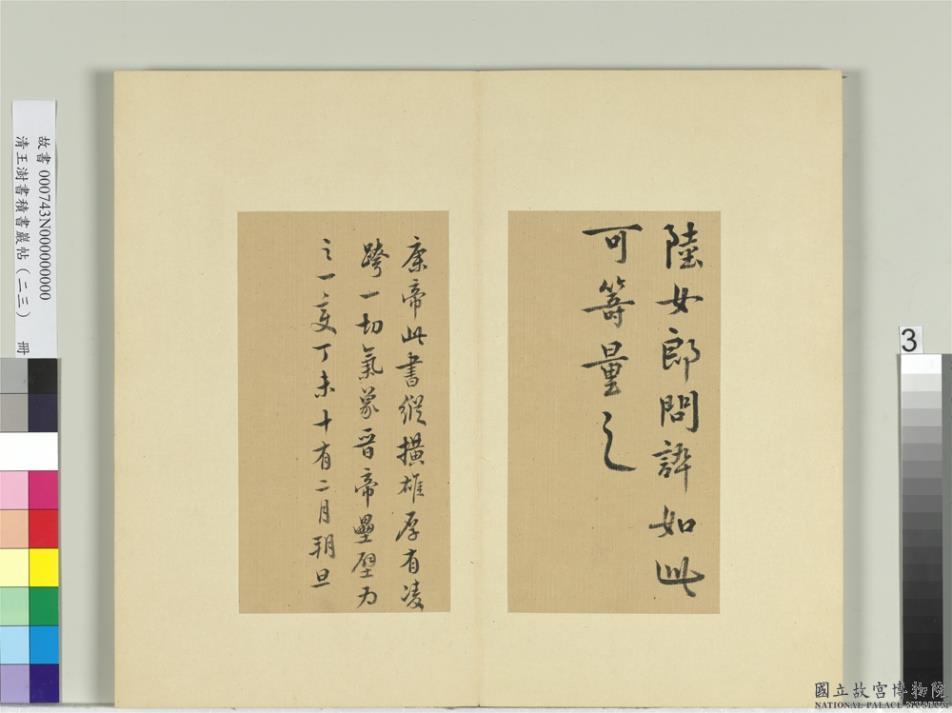 陸女郎問訴如此
可籌量之
康帝此書縱橫雄厚有凌
跨一切氣象晉帝壘壁为
之一变丁未十有二月朔旦
故書 000743N000000000
清王澍書積書巖帖（二三） 冊
3
國立故宮博物院
NATIONAL PALACE MUSEUM